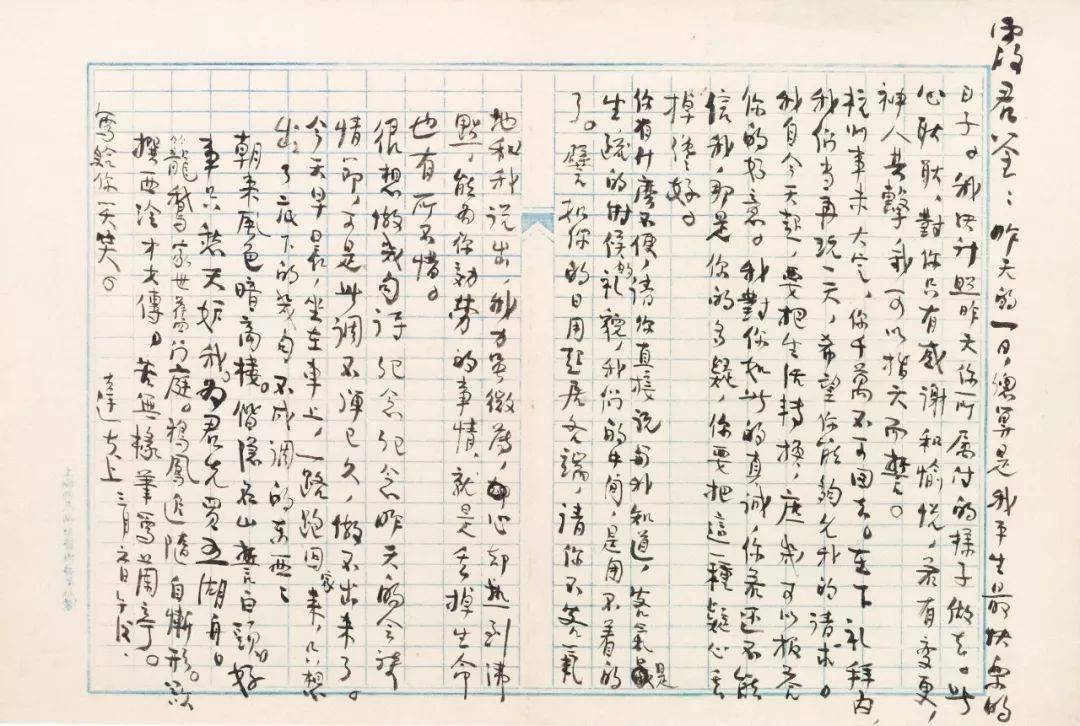 霞君鉴：昨天的一日，總算是我平生最快樂的
日子。我决计照昨天你所属付的樣子做去。此
心耿耿，對你只有感謝和愉悦，若有变更，
神人共擊，我可以指天而誓。
杭州事未大定，你千萬不可回去。在下礼拜内
我们当再玩一天，希望你能夠允我的请求。
我自今天起，要把生活转换，庶幾可以报答
你的好意。我對你如此的真诚，你若还不能
信我，那是你的多疑，你要把這一種疑心去
掉纔好。
你有什麼不便，请你直接说與我知道，客氣是
生疏的时候的礼貌，我们的中间，是用不着的
了。譬如你的日用起居各端，请你不客氣
地和我说出，我力虽微薄，心却热到沸
點，能为你効劳的事情，就是丢掉生命
也有所不惜。
很想做幾句诗纪念纪念昨天的会談
情節，可是此调不弹已久，做不出来了。
今天早晨，坐在車上，一路跑回家来，只想
出了底下的幾句不成调的东西：
朝来風色暗高楼。偕隐名山誓白頭。好
事只愁天妒我。为君先買五湖舟。
籠鵝家世舊门庭。鴉鳳追隨自慚形。欲
撰西泠才女傳。苦無椽筆寫蘭亭。
寫给你一笑。
達夫上 三月